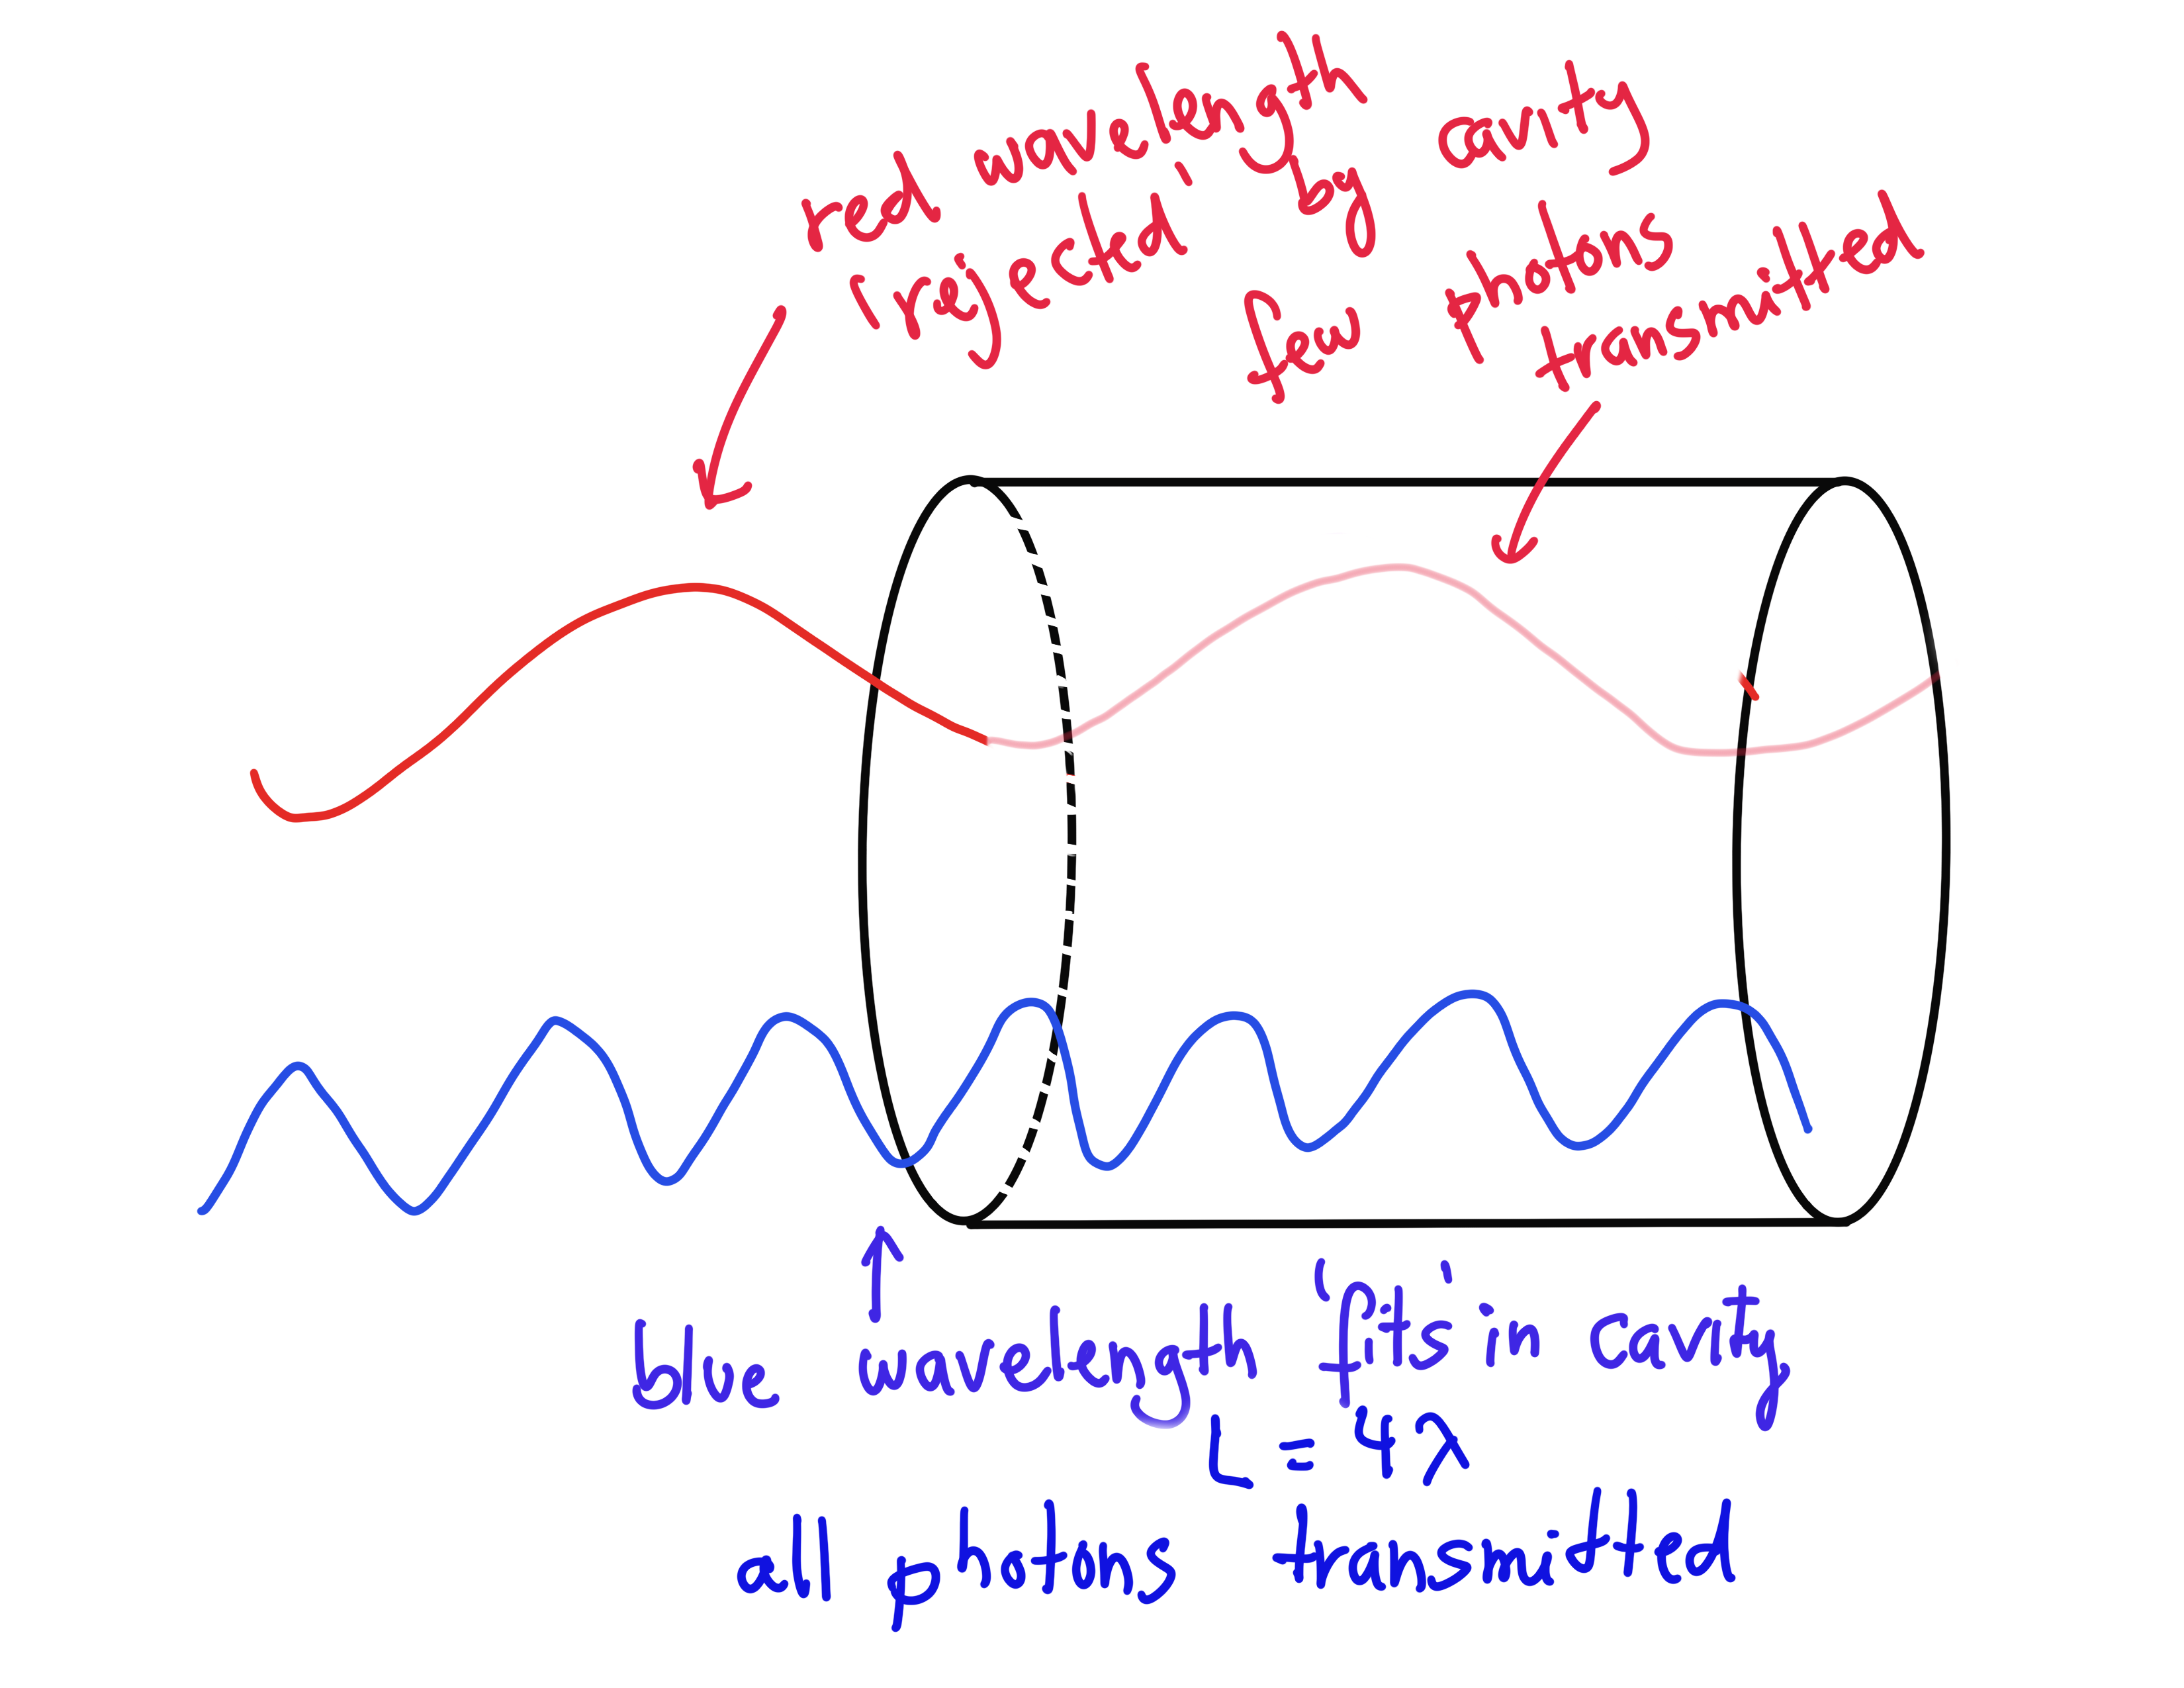 red wavelength
'rejected' by cavity
few photons
transmitted
blue wavelength 'fits' in cavity
L = 4λ
all photons transmitted